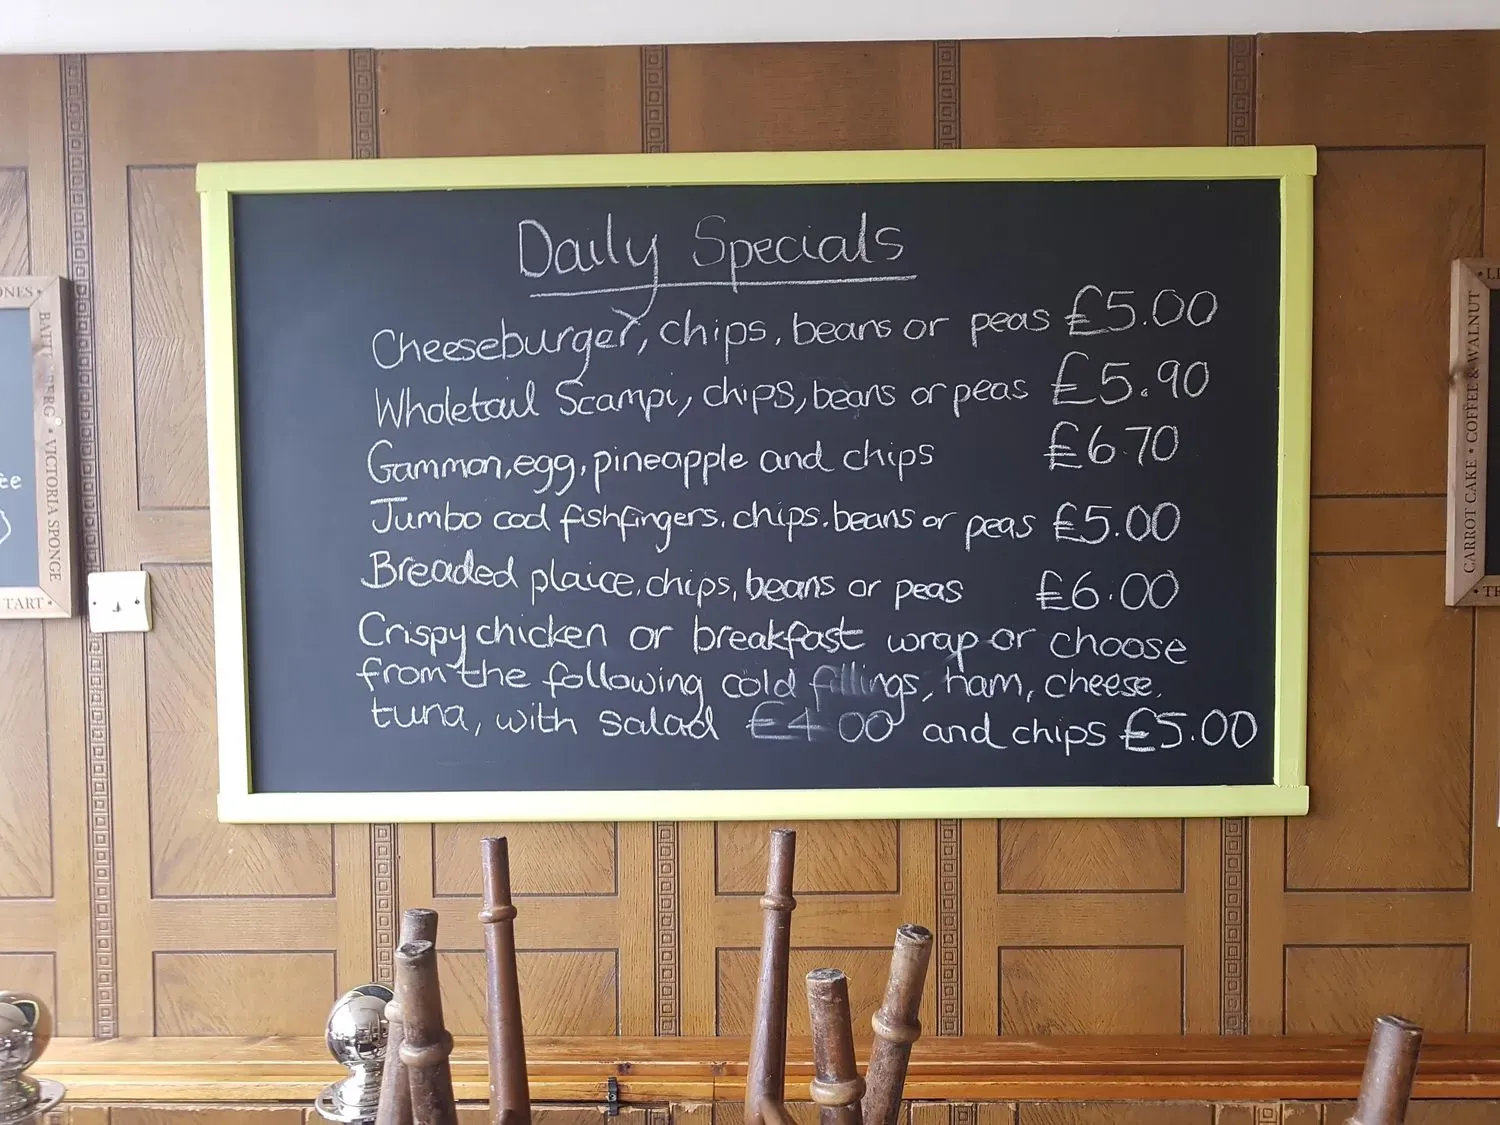 Daily Specials
Cheeseburger, chips, beans or peas £5.00
Wholetail Scampi, chips, beans or peas £5.90
Gammon, egg, pineapple and chips £6.70
Jumbo cod fishfingers, chips, beans or peas £5.00
Breaded plaice, chips, beans or peas £6.00
Crispy chicken or breakfast wrap or choose
from the following cold fillings, ham, cheese,
tuna, with salad £4.00 and chips £5.00
VICTORIA SPONGE
TART
CARROT CAKE • COFFEE & WALNUT